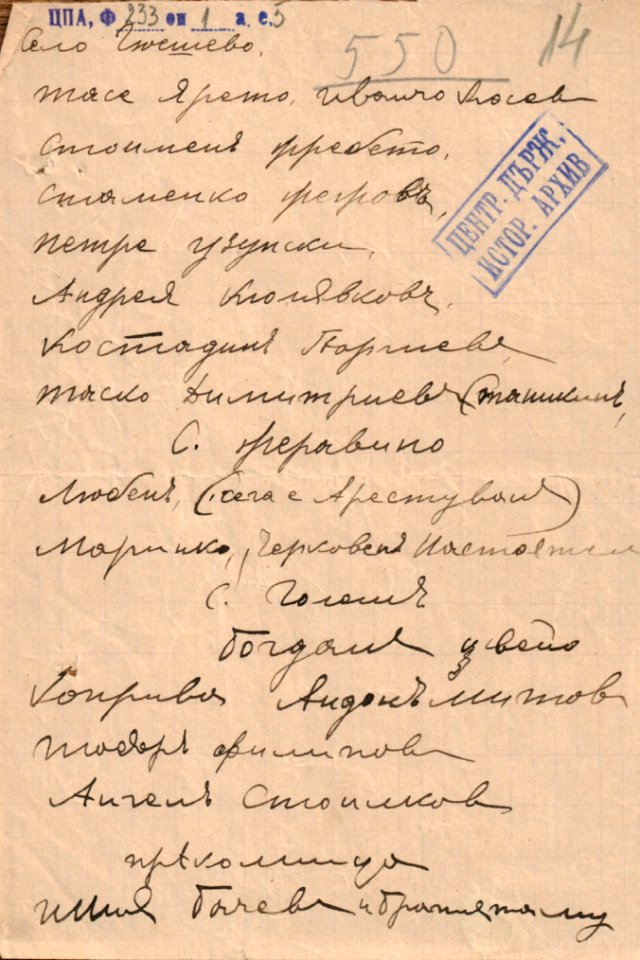 ЦПА, Ф 233 оп 1 а. е. 5
550 14
Село Гюешево.
Тасе Ярето, Иванчо Носев
Стоименъ
Стаменко
Петре Узунски,
Андрея Кюлявковъ,
Костадинъ Георгиевъ
Таско Димитриевъ (Ташкинъ,
ЦЕНТР. ДЪРЖ.
ИСТОР. АРХИВ
С. Жеравино
Любенъ, (сега е Арестуванъ)
Маринко, Черковенъ Настоятел
с. Големъ
Богданъ Цвейо
Коприва Андонъ Митов
Тодоръ Филиповъ
Ангелъ Стоилковъ
Прѣколница
Илия Бачевъ и братята му